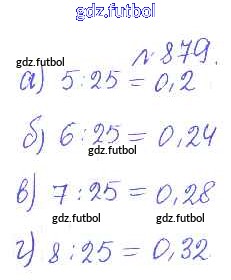 gdz.futbol
№879.
gdz.futbol gdz.futbol
а) 5:25 = 0,2
б) 6:25 = 0,24
в) 7:25 = 0,28
gdz.futbol gdz.futbol
г) 8:25 = 0,32